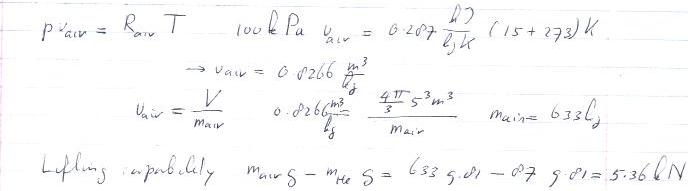 p vair = Rair T 100 kPa vair = 0.287 kJ/kgK (15 + 273) K
→ vair = 0.8266 m³/kg
vair = V/mair 0.8266 m³/kg = 4π/3 5³ m³/mair mair = 633 kg
Lifting capability mair g - mHe g = 633 9.81 - 87 9.81 = 5.36 kN